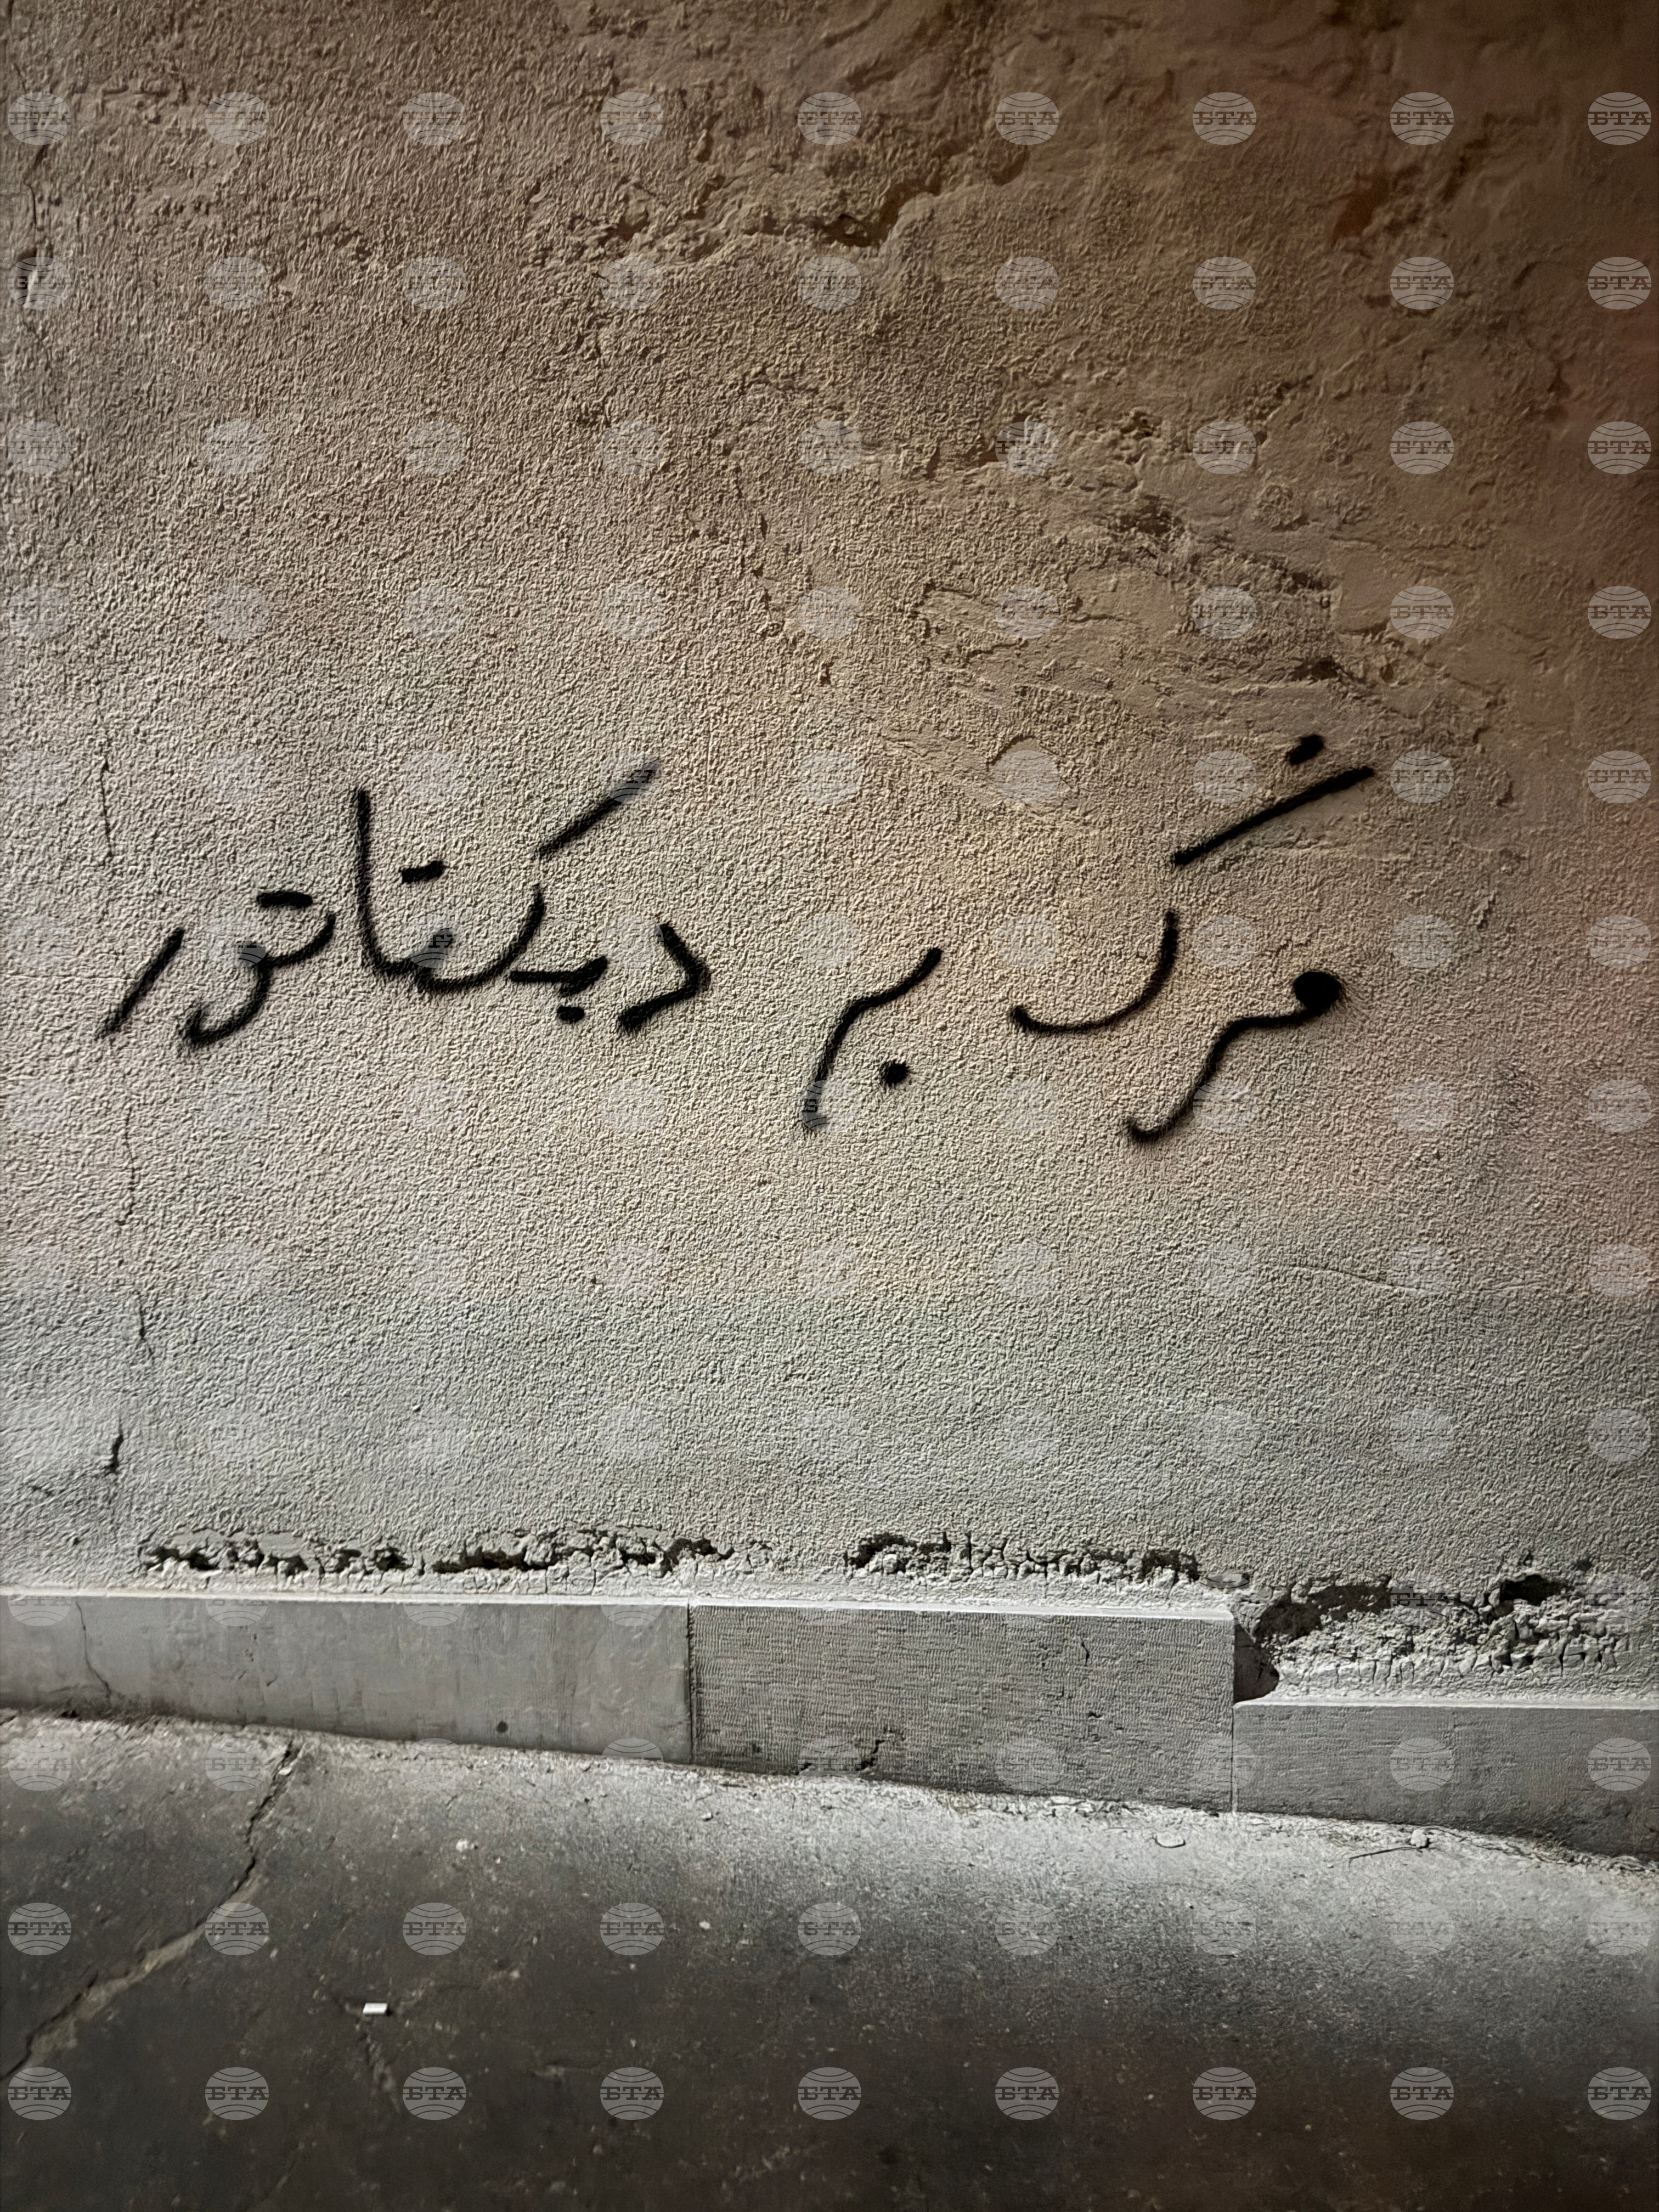 مرگ بر دیکتاتور